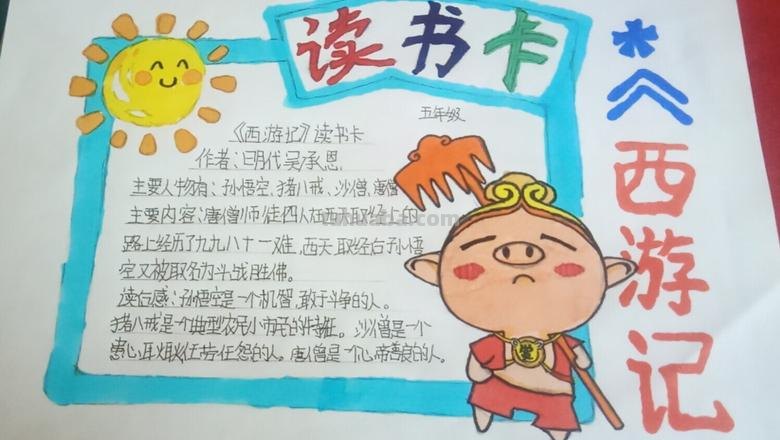 读书卡
*《西游记
五年级
《西游记》读书卡
作者:明代吴承恩
主要人物有:孙悟空、猪八戒、沙僧、唐僧
主要内容:唐僧师徒四人在西天取经上的
路上经历了九九八十一难,西天取经后孙悟
空又被取名为斗战胜佛。
读后感:孙悟空是一个机智、敢于斗争的人。
猪八戒是一个典型农民小市民的。沙僧是一个
忠心耿耿任劳任怨的人。唐僧是一个心善良的人。